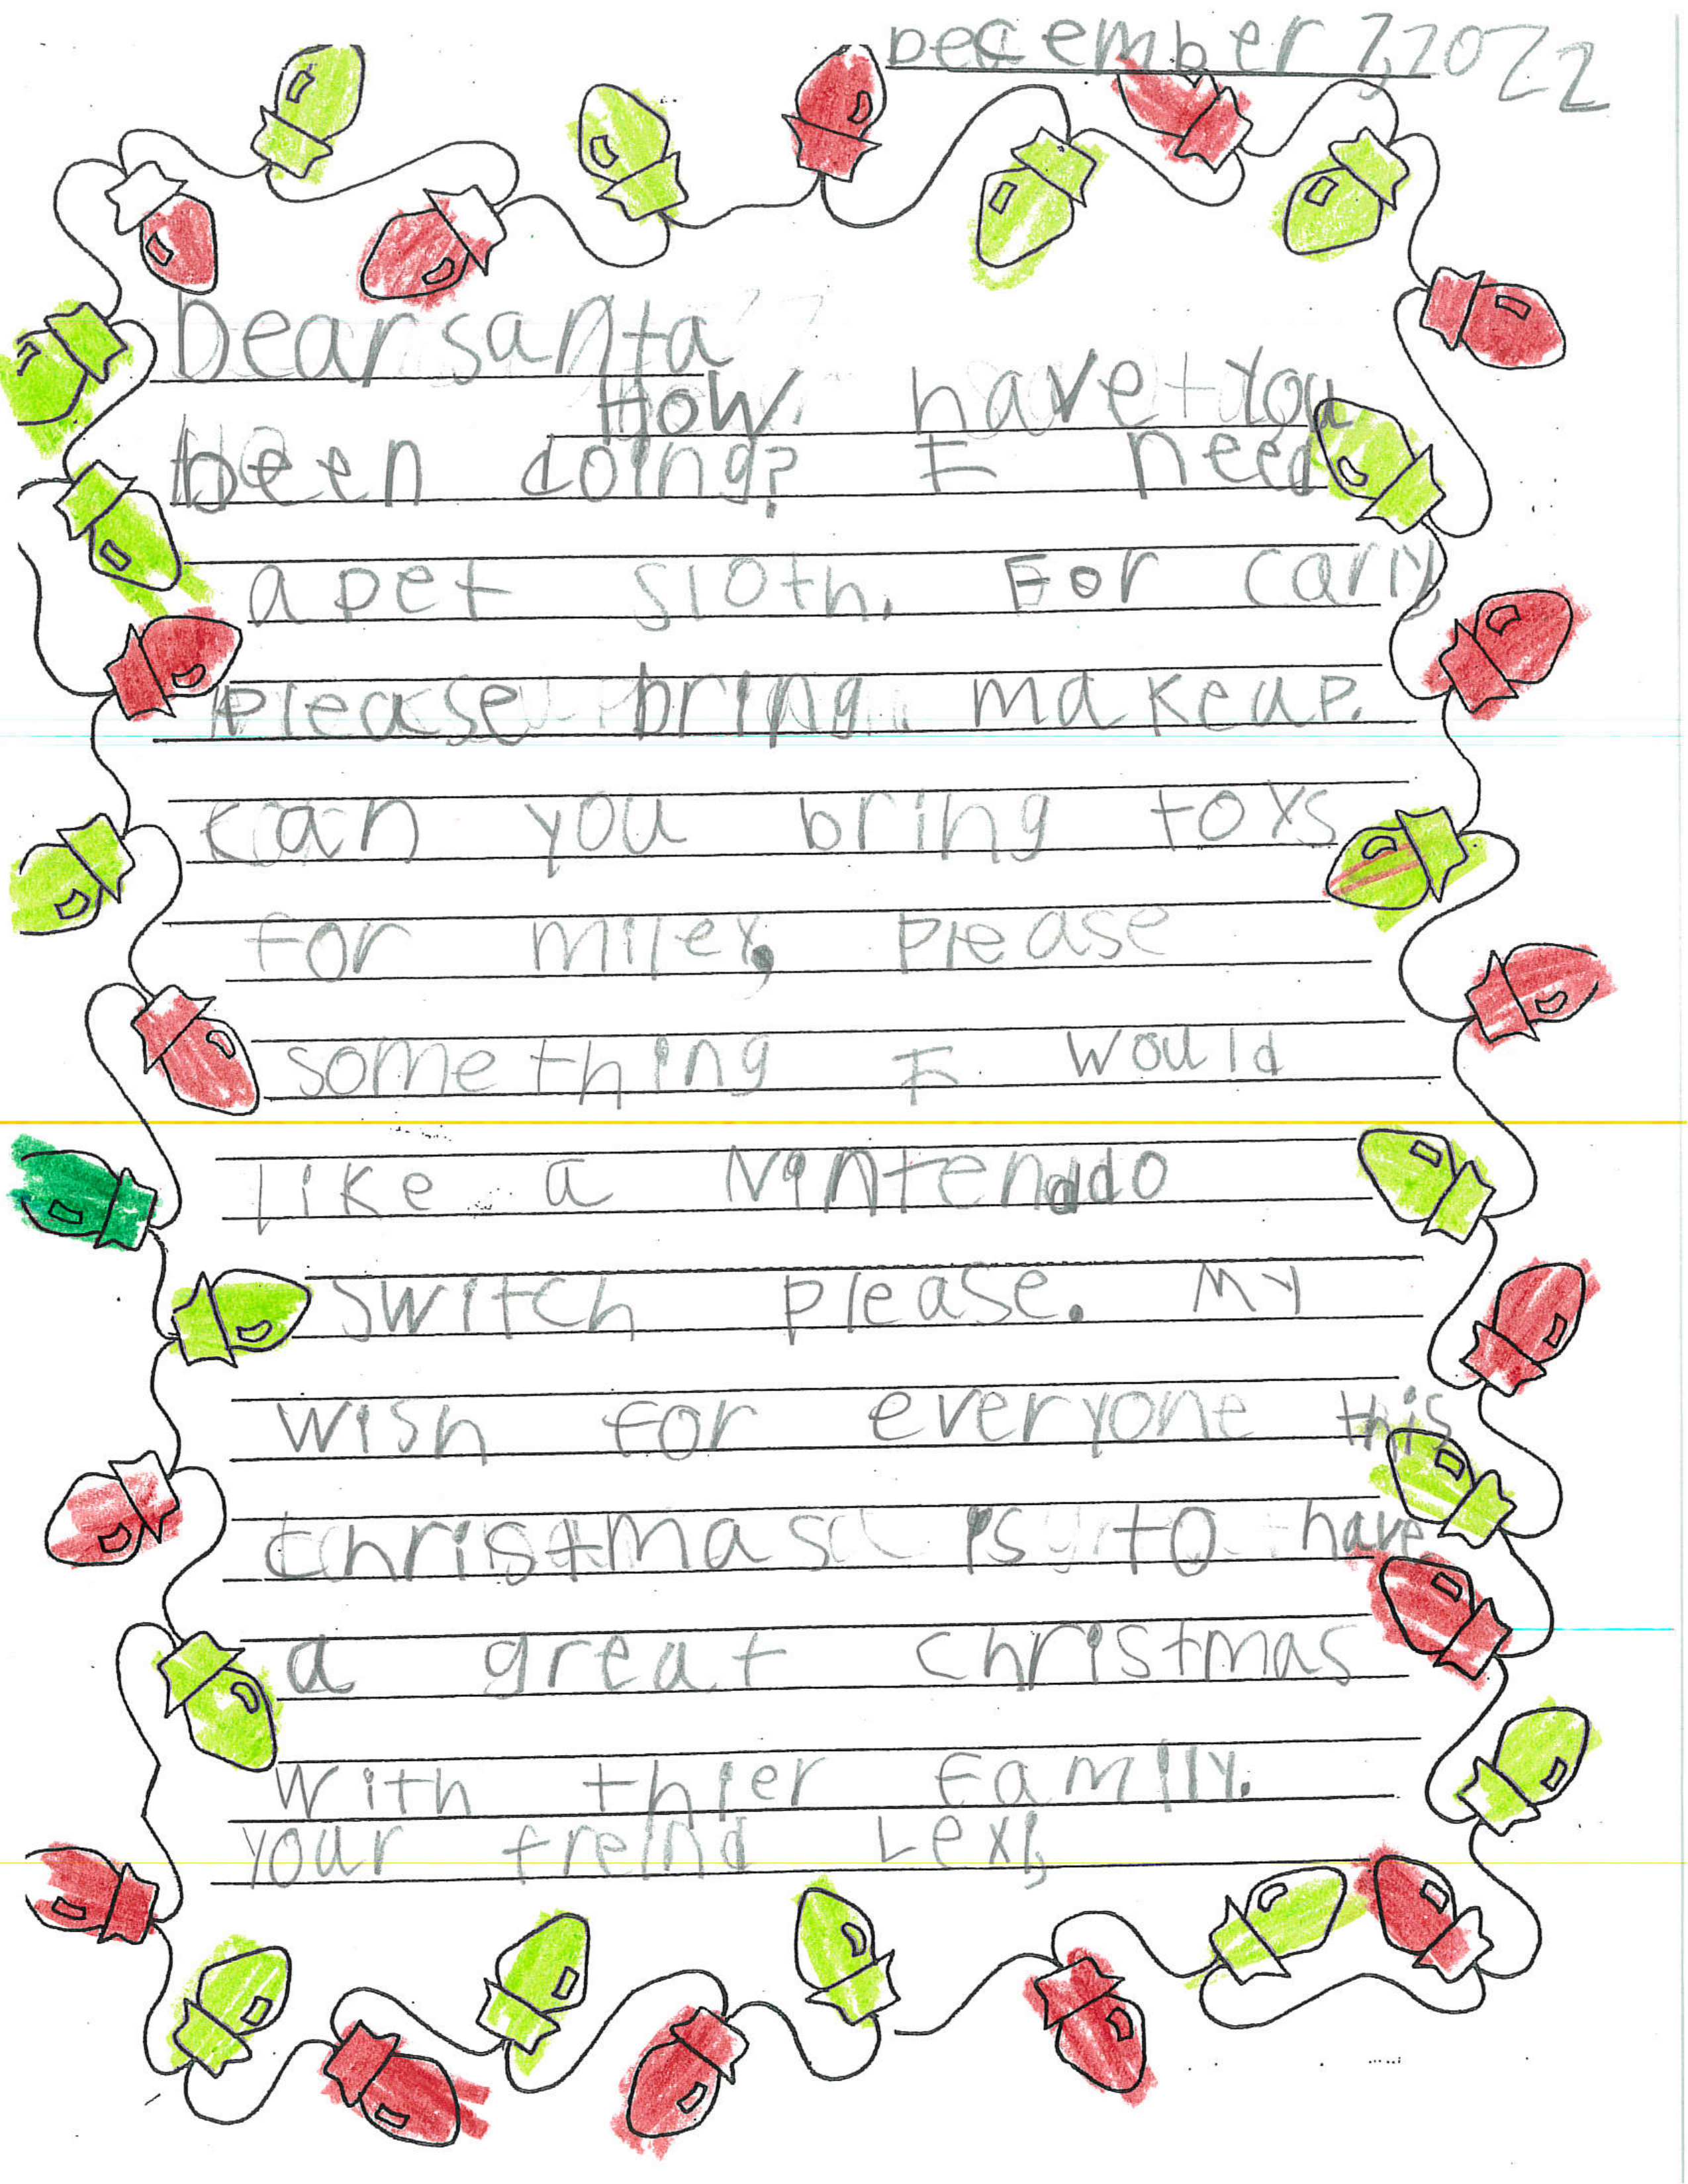 December 7, 2022
Dear santa
How have you
been doing? I need
a pet sloth. For carly
please bring makeup.
can you bring toys
for miley, please
something I would
like a Nintendo
switch please. My
wish for everyone this
christmas is to have
a great christmas
with thier Family.
your freind Lexi,